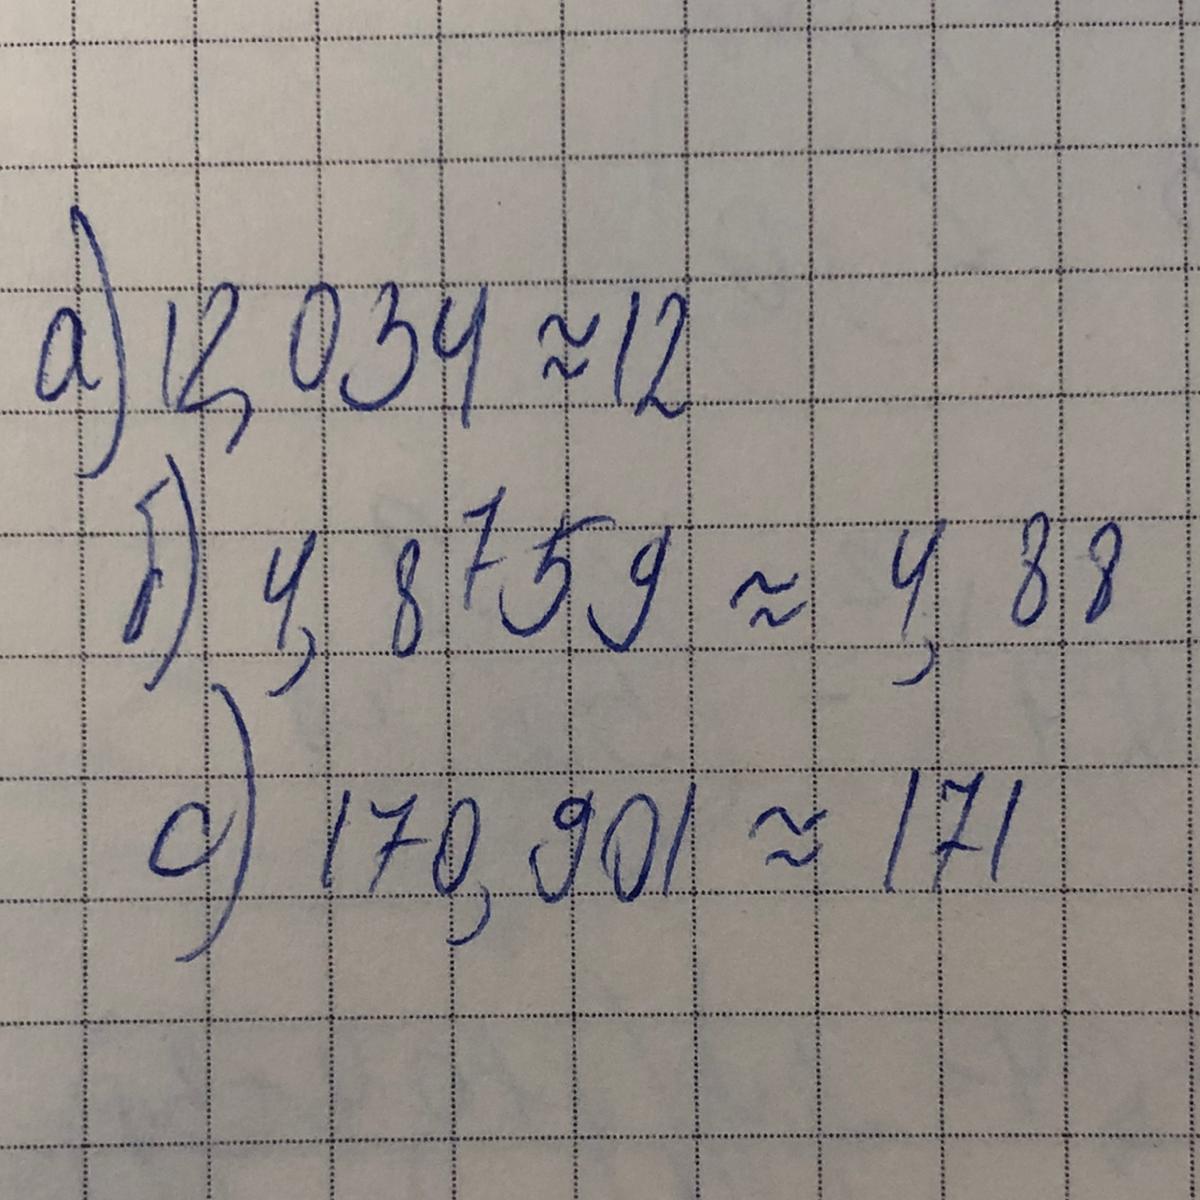 а) 12,034 ≈ 12
б) 4,8759 ≈ 4,88
с) 170,901 ≈ 171